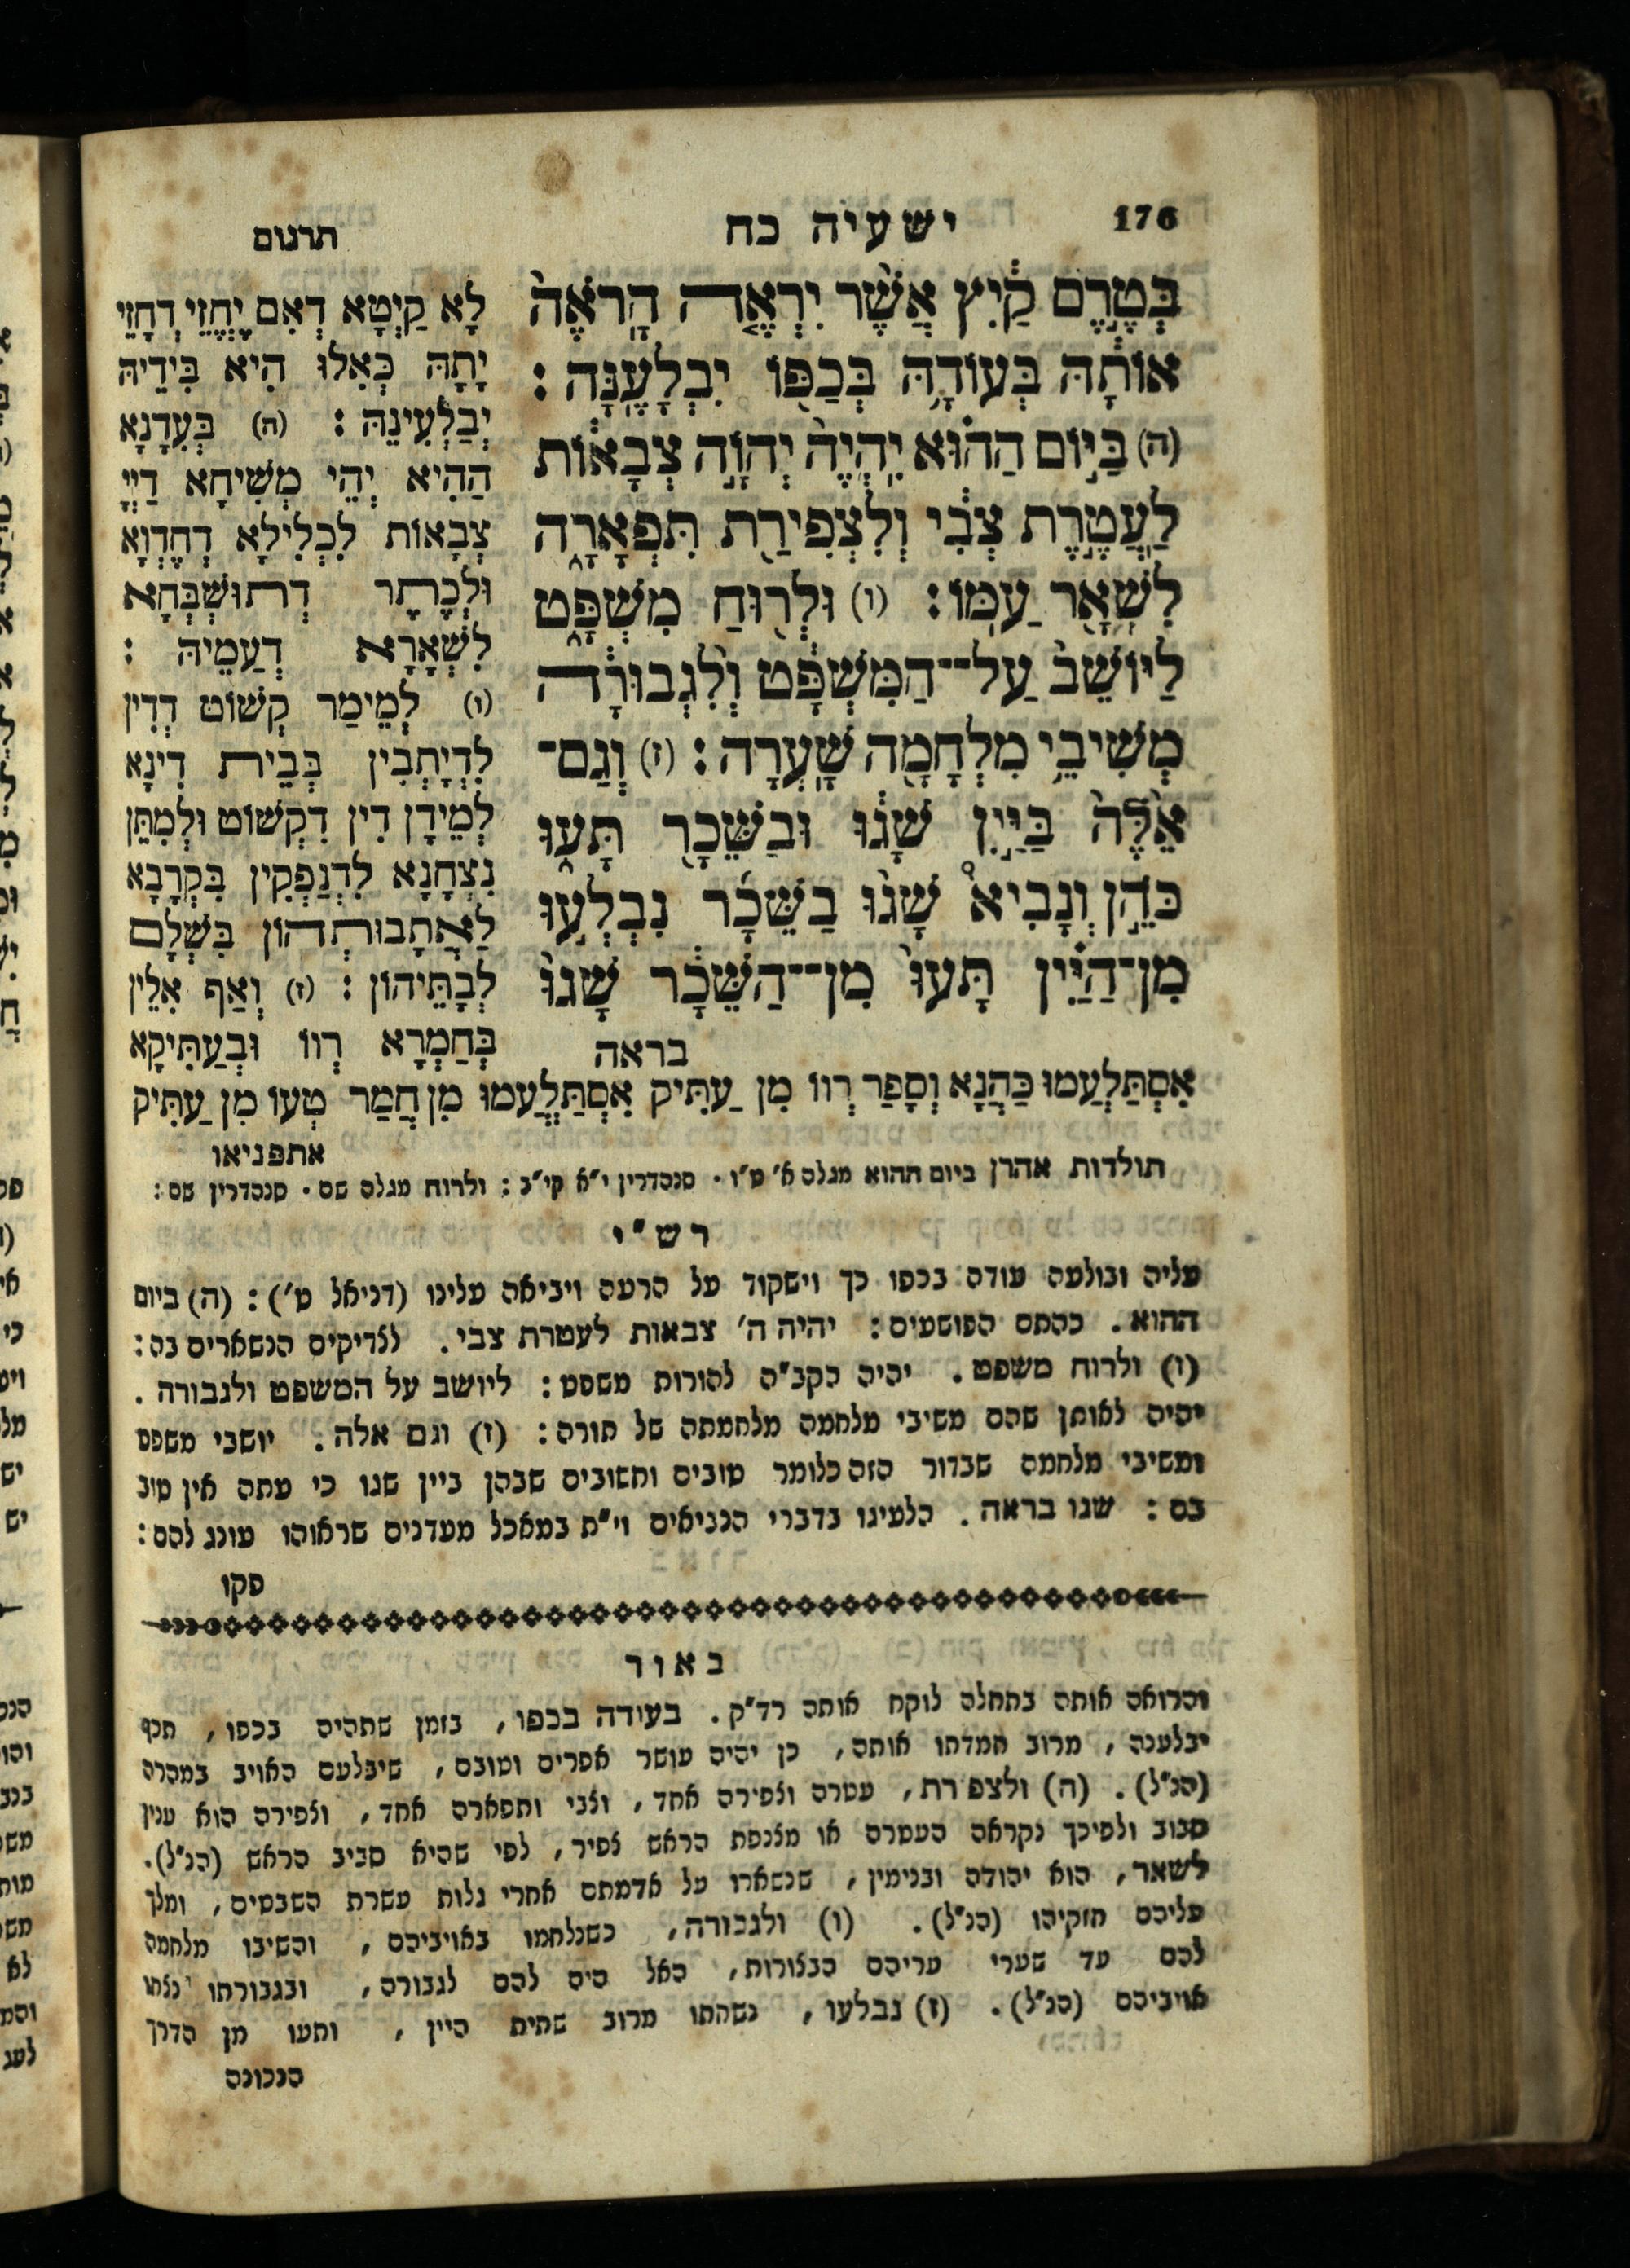 176
ישעיה כח
תרגום
בְּטֶ֣רֶם קַ֔יִץ אֲשֶׁ֨ר יִרְאֶ֤ה הָֽרֹאֶה֙
אוֹתָ֔הּ בְּעוֹדָ֥הּ בְּכַפּ֖וֹ יִבְלָעֶֽנָּה :
(ה) בַּיּ֣וֹם הַה֗וּא יִֽהְיֶה֙ יְהוָ֣ה צְבָא֔וֹת
לַעֲטֶ֣רֶת צְבִ֔י וְלִצְפִירַ֖ת תִּפְאָרָ֑ה
לִשְׁאָ֖ר עַמּֽוֹ : (ו) וּלְר֖וּחַ מִשְׁפָּ֑ט
לַיּוֹשֵׁב֙ עַל־הַמִּשְׁפָּ֔ט וְלִ֨גְבוּרָ֔ה
מְשִׁיבֵ֥י מִלְחָמָ֖ה שָֽׁעְרָה : (ז) וְגַם־
אֵ֨לֶּה֙ בַּיַּ֣יִן שָׁג֔וּ וּבַשֵּׁכָ֖ר תָּע֑וּ
כֹּהֵ֣ן וְנָבִיא֩ שָׁג֨וּ בַשֵּׁכָ֜ר נִבְלְע֣וּ
מִן־הַיַּ֗יִן תָּעוּ֙ מִן־הַשֵּׁכָ֔ר שָׁגוּ֙
בראה
לָא קַיְטָא דְאִם יֶחֱזֵי דְחָזֵי
יָתָהּ כְּאִלוּ הִיא בִּידֵיהּ
יְבַלְעִינֵהּ : (ה) בְּעִדָנָא
הַהִיא יְהֵי מְשִׁיחָא דַיְיָ
צְבָאוֹת לִכְלִילָא דְחֶדְוָא
וּלְכָתָר דְתוּשְׁבְּחָא
לִשְׁאָרָא דְעַמֵיהּ :
(ו) לְמֵימַר קְשׁוֹט דְדִין
לִדְיָתְבִין בְּבֵית דִינָא
לְמֵידָן דִין דִקְשׁוֹט וּלְמִתֵּן
נִצְחָנָא לִדְנַפְקִין בִּקְרָבָא
לַאֲתָבוּתְהוֹן בִּשְׁלָם
לְבָתֵּיהוֹן : (ז) וְאַף אִלֵין
בְּחַמְרָא רְווֹ וּבְעַתִּיקָא
אִסְתַּלְעַמוּ כַּהֲנָא וְסָפַר רְווֹ מִן עַתִּיק אִסְתַּלְעֲמוּ מִן חֲמַר טְעוֹ מִן עַתִּיק
אתפניאו
תולדות אהרן ביום ההוא מגלה א׳ ט״ו · סנהדרין י״א קי״ב : ולרוח מגלה שם · סנהדרין שם :
רש״י
עליה ובולעה עודה בכפו כך וישקוד על הרעה ויביאה עלינו (דניאל ט׳) : (ה) ביום
ההוא . כהתם הפושעים : יהיה ה׳ צבאות לעטרת צבי . לצדיקים הנשארים בה :
(ו) ולרוח משפט . יהיה הקב״ה להורות משפט : ליושב על המשפט ולגבורה .
יהיה לאותן שהם משיבי מלחמה מלחמתה של תורה : (ז) וגם אלה . יושבי משפט
ומשיבי מלחמה שבדור הזה כלומר טובים וחשובים שבהן ביין שגו כי עתה אין טוב
בם : שגו בראה . הלעיגו בדברי הנביאים וי״ת במאכל מעדנים שראוהו עונג להם :
פקו
באור
והרואה אותה בתחלה לוקח אותה רד״ק . בעודה בכפו , בזמן שתהיה בכפו , תכף
יבלענה , מרוב חמדתו אותה , כן יהיה עושר אפרים וטובם , שיבלעם האויב במהרה
(הנ״ל) . (ה) ולצפירת , עטרה וצפירה אחד , וצבי ותפארה אחד , וצפירה הוא ענין
סבוב ולפיכך נקראה העטרה או מצנפת הראש צפיר , לפי שהיא סביב הראש (הנ״ל) .
לשאר , הוא יהודה ובנימין , שנשארו על אדמתם אחרי גלות עשרת השבטים , ומלך
עליהם חזקיהו (הנ״ל) . (ו) ולגבורה , כשנלחמו באויביהם , והשיבו מלחמה
להם עד שערי עריהם הבצורות , האל היה להם לגבורה , ובגבורתו נצחו
אויביהם (הנ״ל) . (ז) נבלעו , נשחתו מרוב שתית היין , ותעו מן הדרך
הנכונה